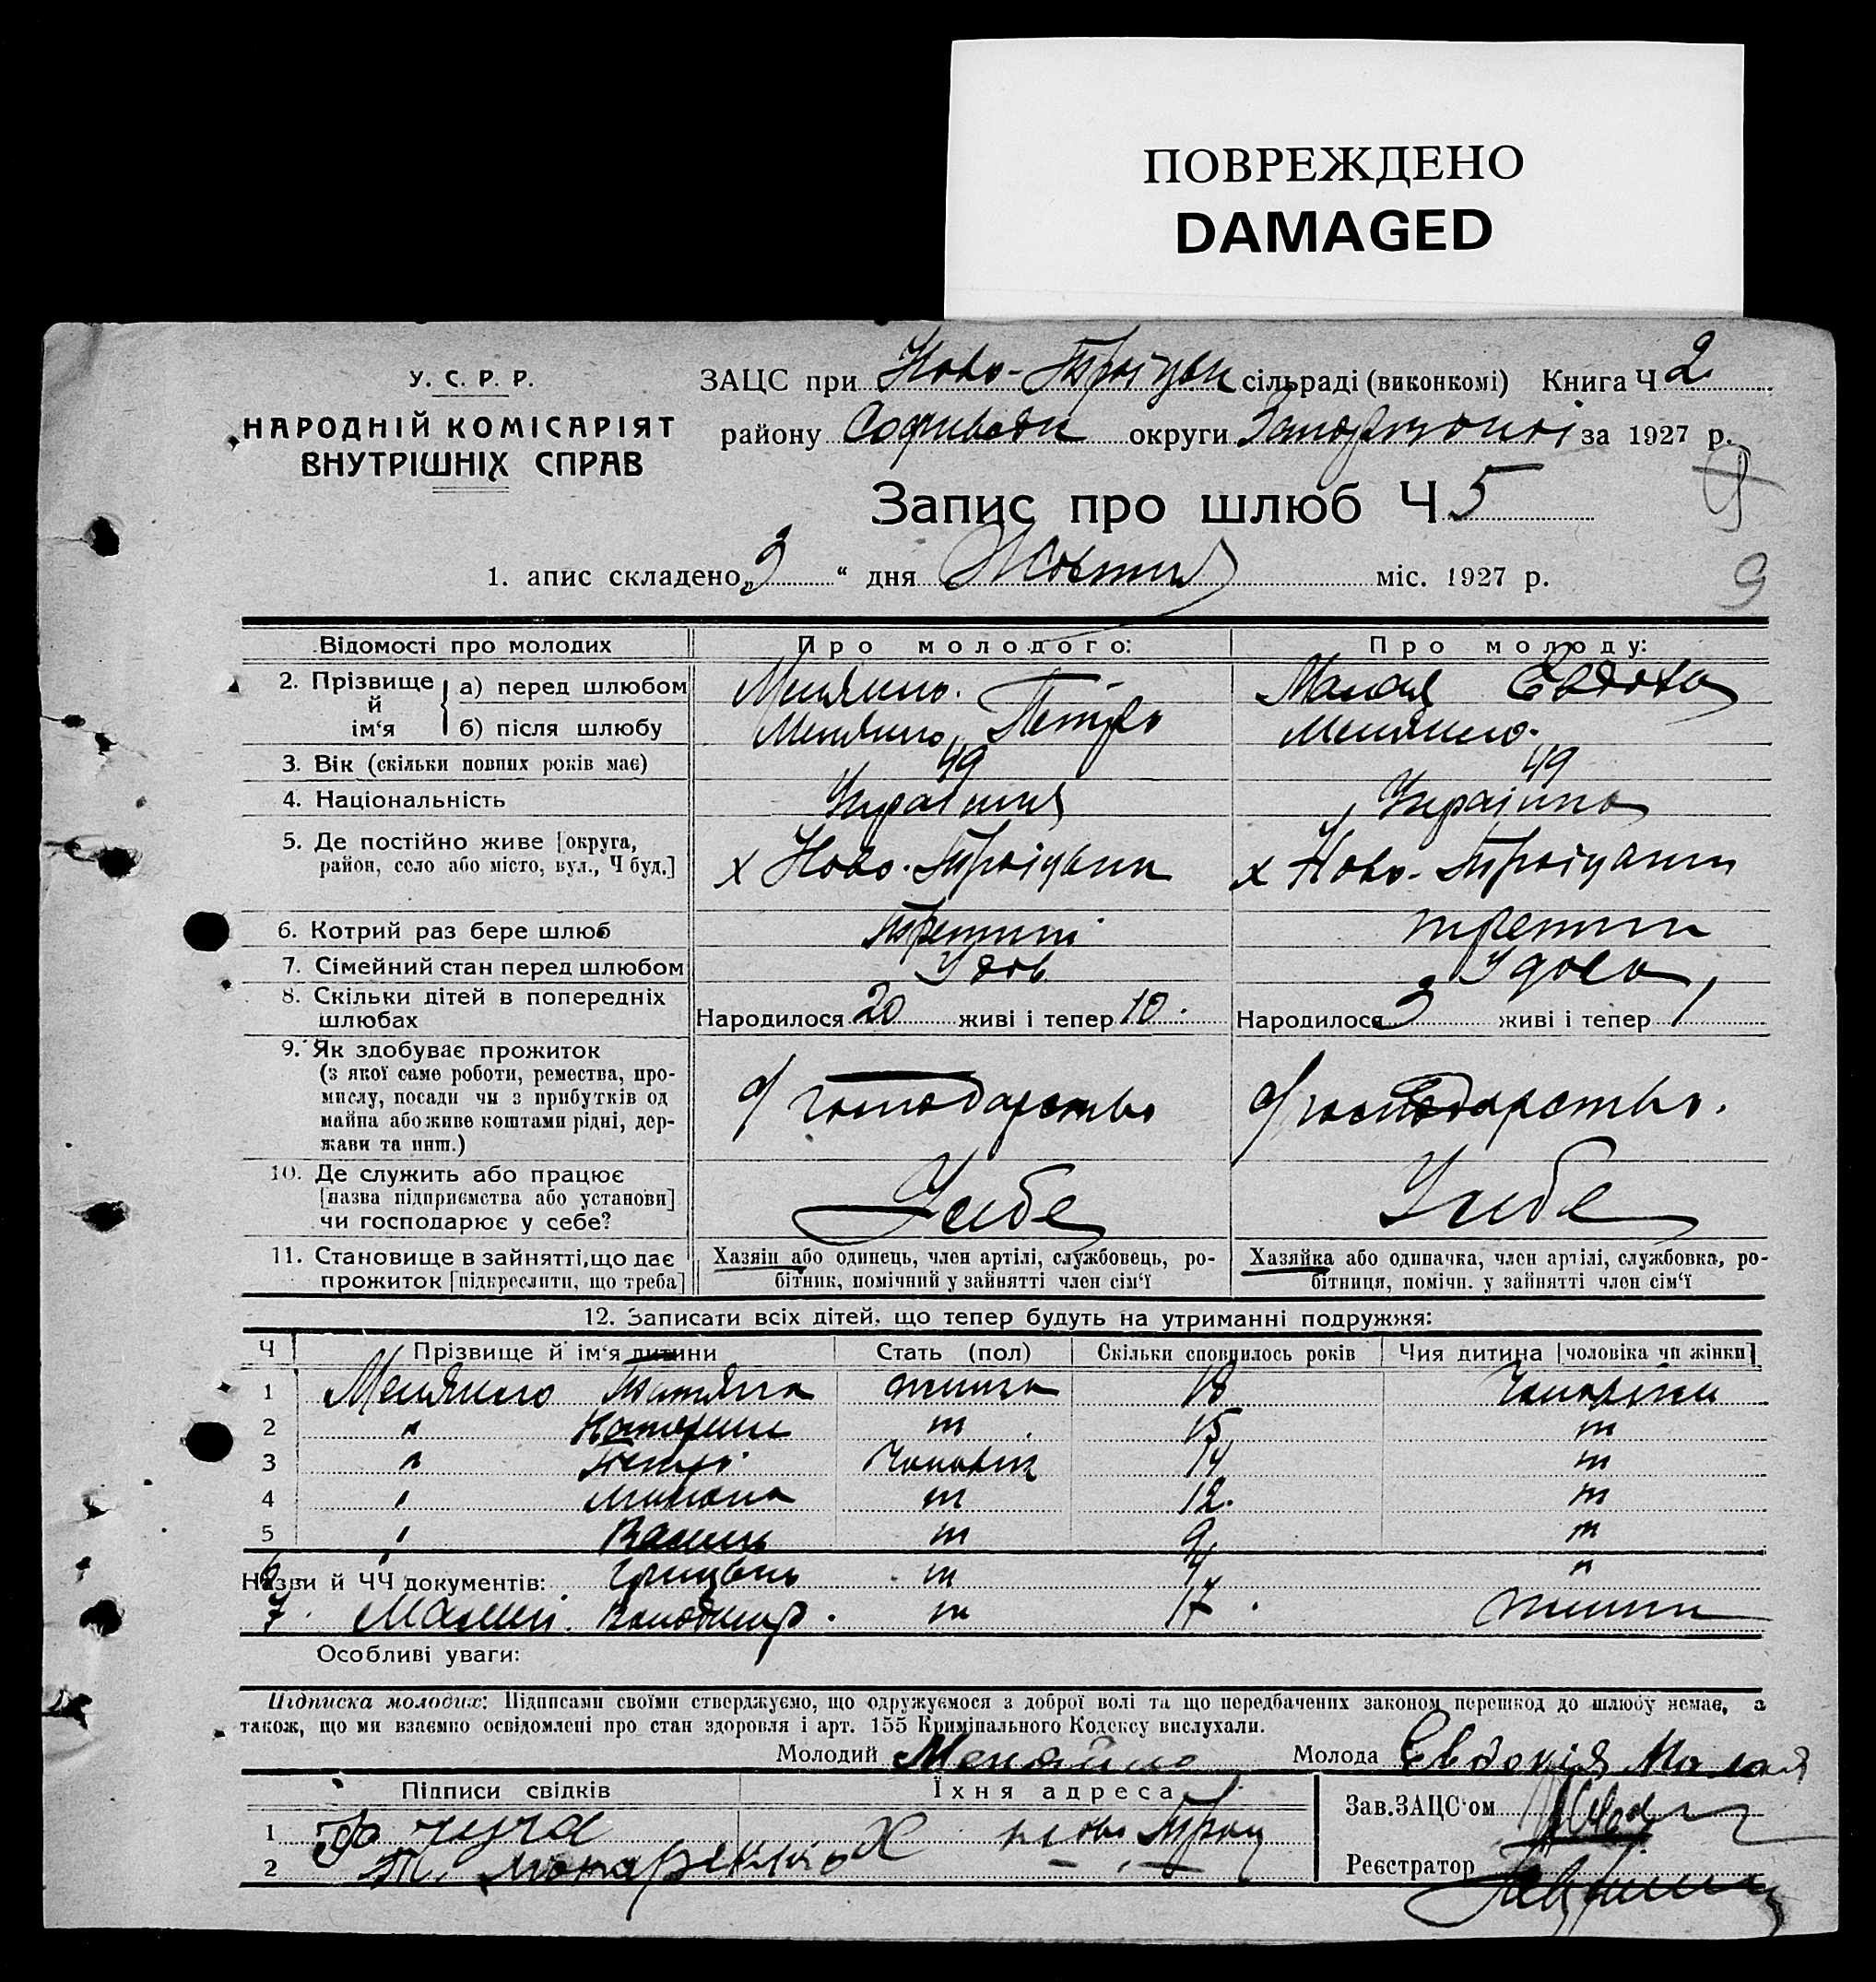 ПОВРЕЖДЕНО
DAMAGED
У. С. Р. Р.
НАРОДНІЙ КОМІСАРІЯТ
ВНУТРІШНІХ СПРАВ
ЗАЦС при Ново-Троіцьк сільраді (виконкомі) Книга Ч 2
району Софиевськ округи за 1927 р.
Запис про шлюб Ч 5
1. апис складено „ “ дня Жовтня міс. 1927 р.
9
Відомості про молодих Про молодого: Про молоду:
2. Прізвище й ім‘я
а) перед шлюбом Малая Евдоха
б) після шлюбу Петро
3. Вік (скільки повних років має) 49 49
4. Національність Українка
5. Де постійно живе [округа, х Ново-Троіцьки х Ново-Троіцьки
район, село або місто, вул., Ч буд.]
6. Котрий раз бере шлюб третий
7. Сімейний стан перед шлюбом Удов. Удова
8. Скільки дітей в попередніх
шлюбах Народилося 20 живі і тепер 10. Народилося 3 живі і тепер 1
9. Як здобуває прожиток
(з якої саме роботи, ремества, про-
мислу, посади чи з прибутків од с/господарство с/господарство.
майна або живе коштами рідні, дер-
жави та инш.)
10. Де служить або працює
[назва підприємства або установи] У себе У себе
чи господарює у себе?
11. Становище в зайнятті, що дає Хазяїн або одинець, член артілі, службовець, ро- Хазяйка або одиначка, член артілі, службовка, ро-
прожиток [підкреслити, що треба] бітник, помічний у зайнятті член сім‘ї бітниця, помічн. у зайнятті член сім‘ї
12. Записати всіх дітей, що тепер будуть на утриманні подружжя:
Ч Прізвище й ім‘я дитини Стать (пол) Скільки сповнилось років Чия дитина [чоловіка чи жінки]
1 Татяна жинка 18 Чоловіка
2 " Катерина " 15 "
3 " Петро Чоловік 14 "
4 " Микола " 12. "
5 " Василь " 9 "
6 Назви й ЧЧ документів: Грицько " "
7. Малий Володимір. " 17. жинки
Особливі уваги:
Підписка молодих: Підписами своїми стверджуємо, що одружуємося з доброї волі та що передбачених законом перешкод до шлюбу немає, а
також, що ми взаємно освідомлені про стан здоровля і арт. 155 Кримінального Кодексу вислухали.
Молодий Молода Евдокія Малая
Підписи свідків Їхня адреса Зав.ЗАЦС‘ом
1 х Ново Троіц
2 Т. Реєстратор